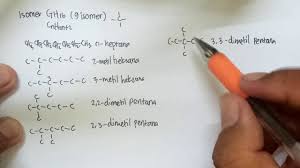 Isomer C7H16 (9 isomer)
CnH2n+2
CH3 CH2 CH2 CH2 CH2 CH2 CH3 n-heptana
C-C-C-C-C-C 2-metil heksana
C-C-C-C-C-C 3-metil heksana
2,2-dimetil pentana
2,3-dimetil pentana
3,3-dimetil pentana